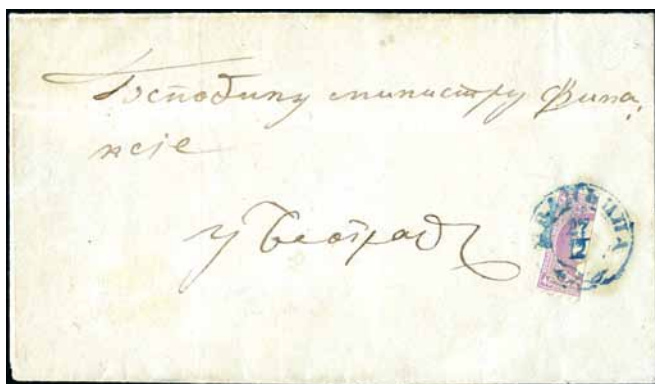 Господину министру Фина,
нсіе
у Београд